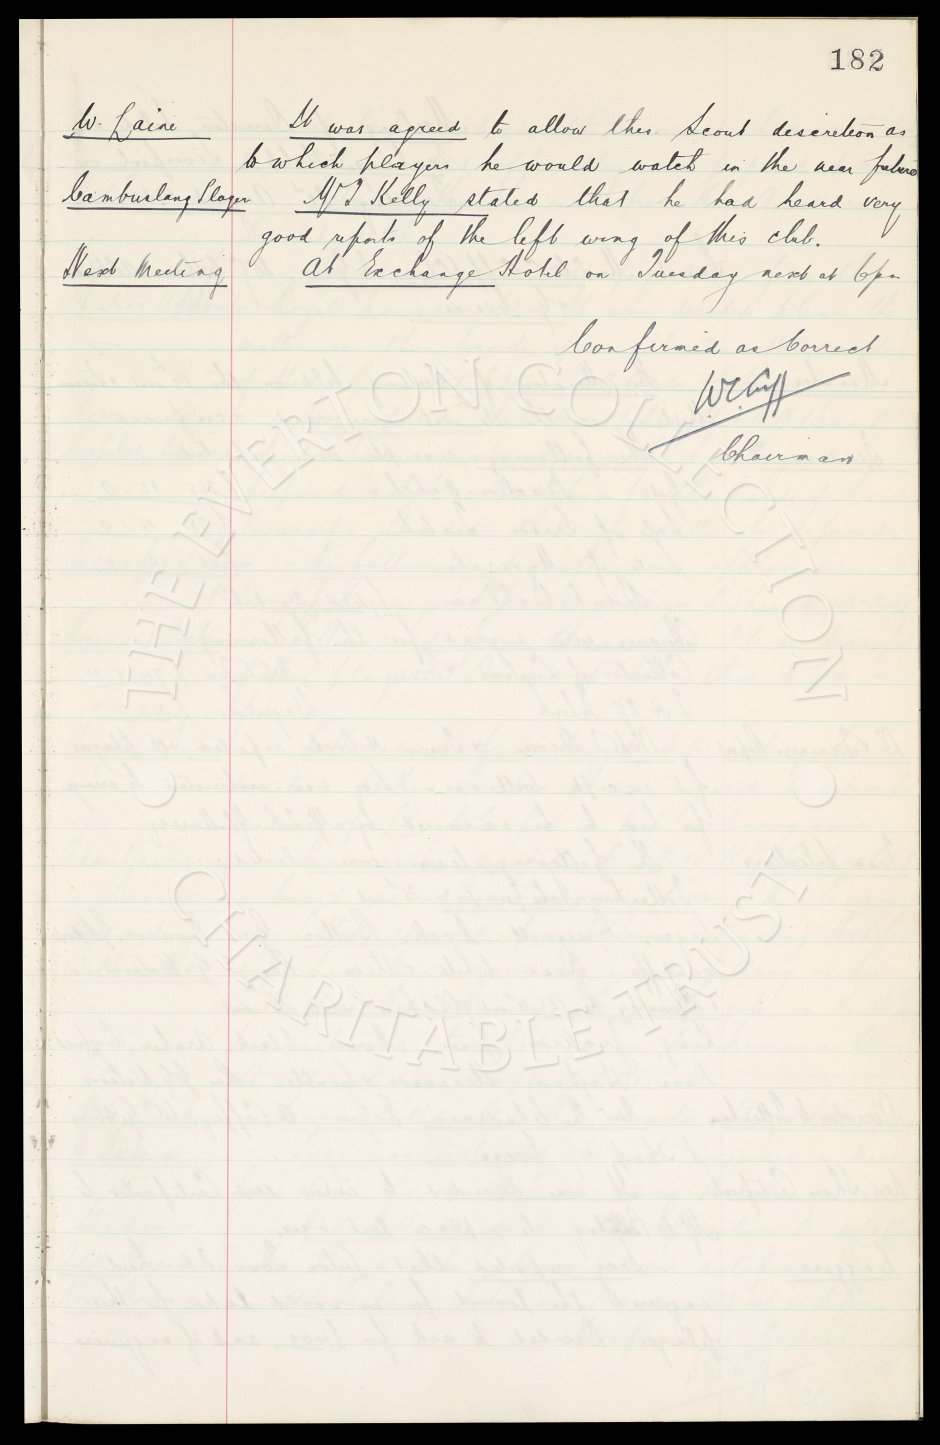 182
W. Laine It was agreed to allow this Scout descretion as
to which players he would watch in the near future
Cambuslang Player Mr J Kelly stated that he had heard very
good reports of the left wing of this club.
Next Meeting At Exchange Hotel on Tuesday next at 6pm
Confirmed as Correct
W.C. Cuff
Chairman
THE EVERTON COLLECTION
CHARITABLE TRUST